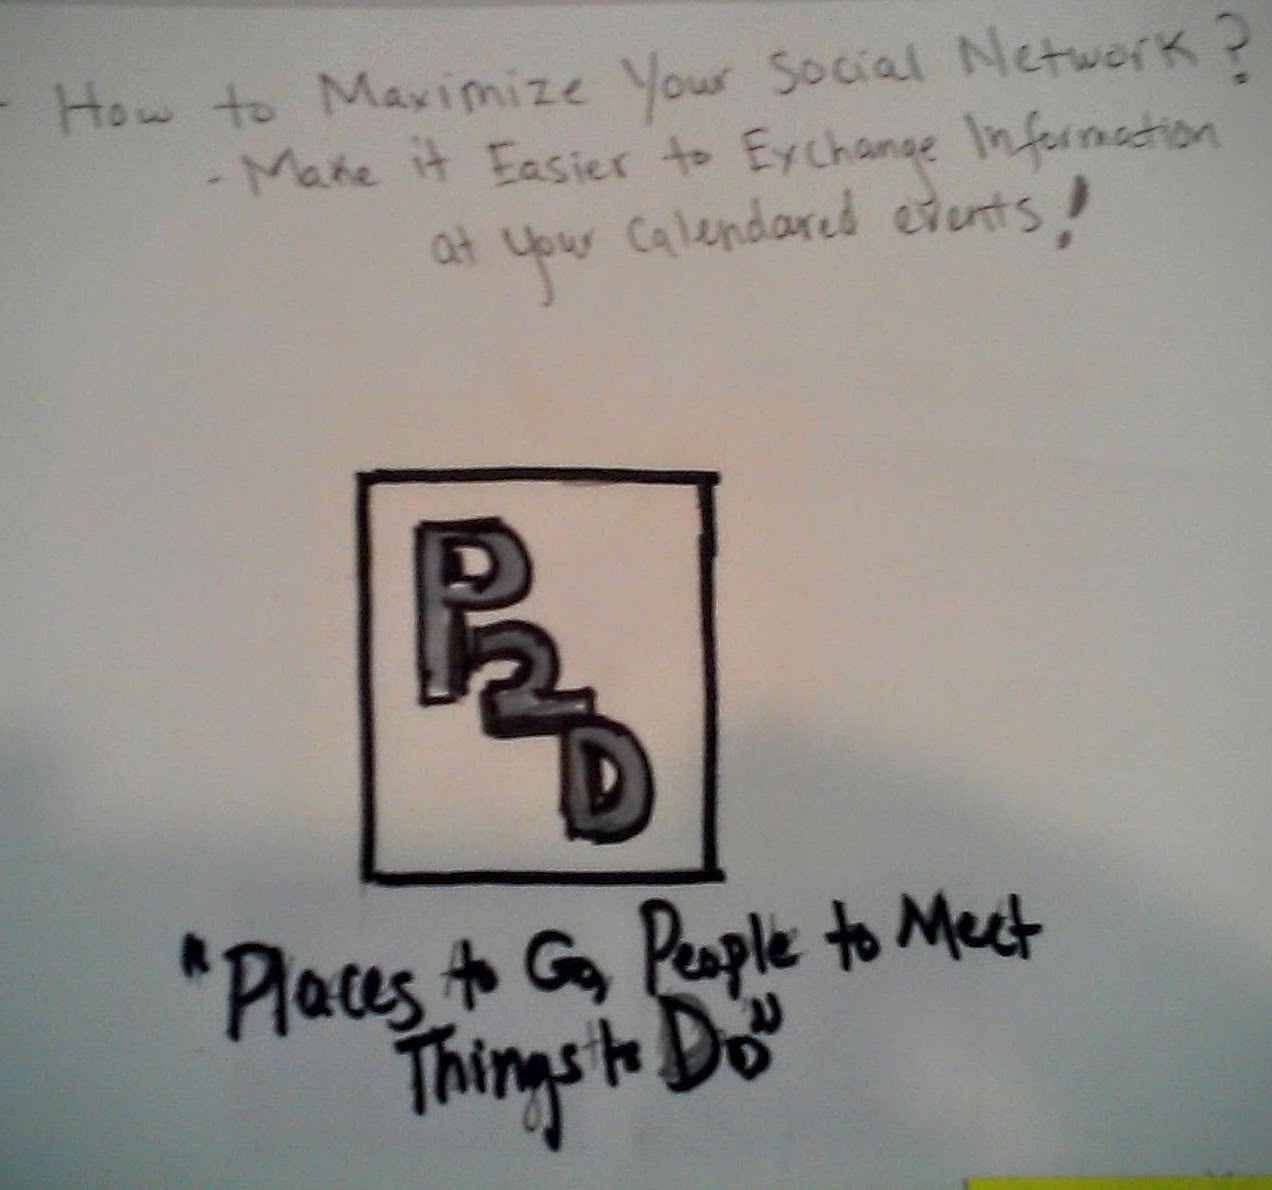 - How to Maximize Your Social Network?
- Make it Easier to Exchange Information
at your Calendared events!
P2D
"Places to Go, People to Meet
Things to Do"